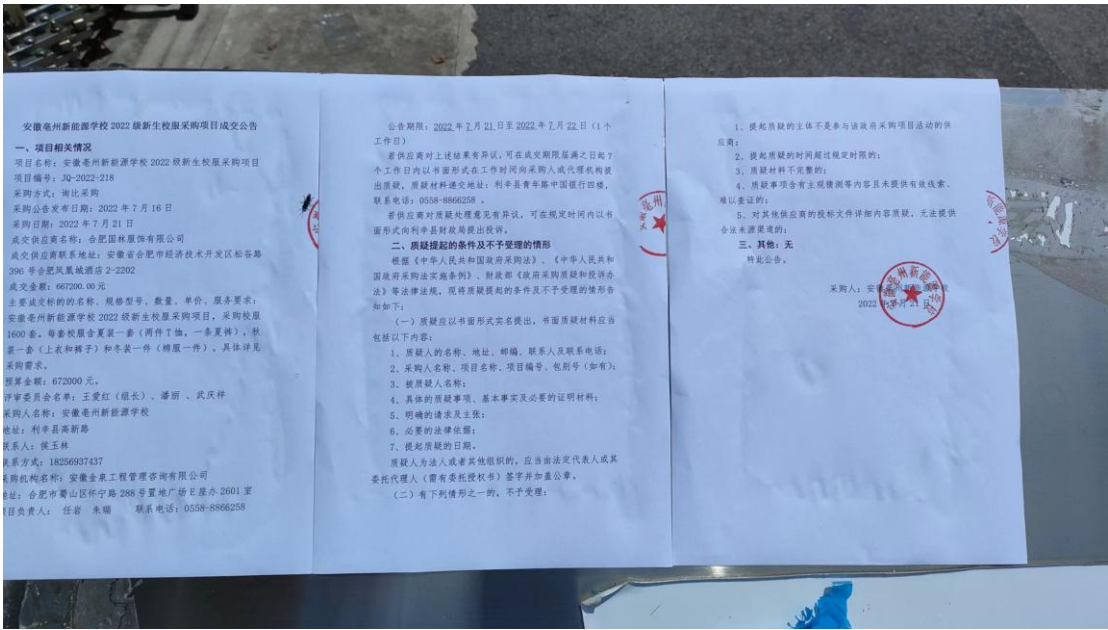 安徽亳州新能源学校 2022 级新生校服采购项目成交公告
一、项目相关情况
项目名称：安徽亳州新能源学校 2022 级新生校服采购项目
项目编号：JQ-2022-218
采购方式：询比采购
采购公告发布日期：2022 年 7 月 16 日
采购日期：2022 年 7 月 21 日
成交供应商名称：合肥国林服饰有限公司
成交供应商联系地址：安徽省合肥市经济技术开发区松谷路
396 号合肥凤凰城酒店 2-2202
成交金额：667200.00 元
主要成交标的的名称、规格型号、数量、单价、服务要求：
安徽亳州新能源学校 2022 级新生校服采购项目，采购校服
1600 套。每套校服含夏装一套（两件 T 恤，一条夏裤）、秋
装一套（上衣和裤子）和冬装一件（棉服一件）。具体详见
采购需求。
预算金额：672000 元。
评审委员会名单：王爱红（组长）、潘丽 、武庆祥
采购人名称：安徽亳州新能源学校
地址：利辛县高新路
联系人：侯玉林
联系方式：18256937437
采购机构名称：安徽金泉工程管理咨询有限公司
地址：合肥市蜀山区怀宁路 288 号置地广场 E 座办 2601 室
项目负责人： 任岩 朱瑞 联系电话：0558-8866258
公告期限：2022 年 7 月 21 日至 2022 年 7 月 22 日（1 个
工作日）
若供应商对上述结果有异议，可在成交期限届满之日起 7
个工作日内以书面形式在工作时间向采购人或代理机构提
出质疑，质疑材料递交地址：利辛县青年路中国银行四楼，
联系电话：0558-8866258 。
若供应商对质疑处理意见有异议，可在规定时间内以书
面形式向利辛县财政局提出投诉。
二、质疑提起的条件及不予受理的情形
根据《中华人民共和国政府采购法》、《中华人民共和
国政府采购法实施条例》、财政部《政府采购质疑和投诉办
法》等法律法规，现将质疑提起的条件及不予受理的情形告
知如下：
（一）质疑应以书面形式实名提出，书面质疑材料应当
包括以下内容：
1、质疑人的名称、地址、邮编、联系人及联系电话；
2、采购人名称、项目名称、项目编号、包别号（如有）；
3、被质疑人名称；
4、具体的质疑事项、基本事实及必要的证明材料；
5、明确的请求及主张；
6、必要的法律依据；
7、提起质疑的日期。
质疑人为法人或者其他组织的，应当由法定代表人或其
委托代理人（需有委托授权书）签字并加盖公章。
（二）有下列情形之一的，不予受理：
1、提起质疑的主体不是参与该政府采购项目活动的供
应商；
2、提起质疑的时间超过规定时限的；
3、质疑材料不完整的；
4、质疑事项含有主观猜测等内容且未提供有效线索、
难以查证的；
5、对其他供应商的投标文件详细内容质疑，无法提供
合法来源渠道的；
三、其他：无
特此公告。
采购人：安徽亳州新能源学校
2022 年 7 月 21 日